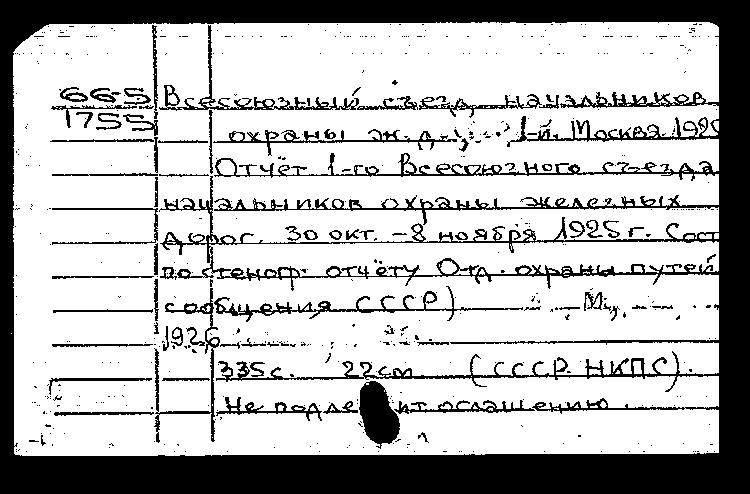 66-5 Всесоюзный съезд начальников
1755 охраны ж.д., 1-й. Москва 1925
Отчёт 1-го Всесоюзного съезда
начальников охраны железных
дорог. 30 окт. - 8 ноября 1925 г. Сост
по стеногр. отчёту Отд. охраны путей
сообщения СССР) М.,
1926
335 с. 22 см (СССР. НКПС).
Не подлежит оглашению.